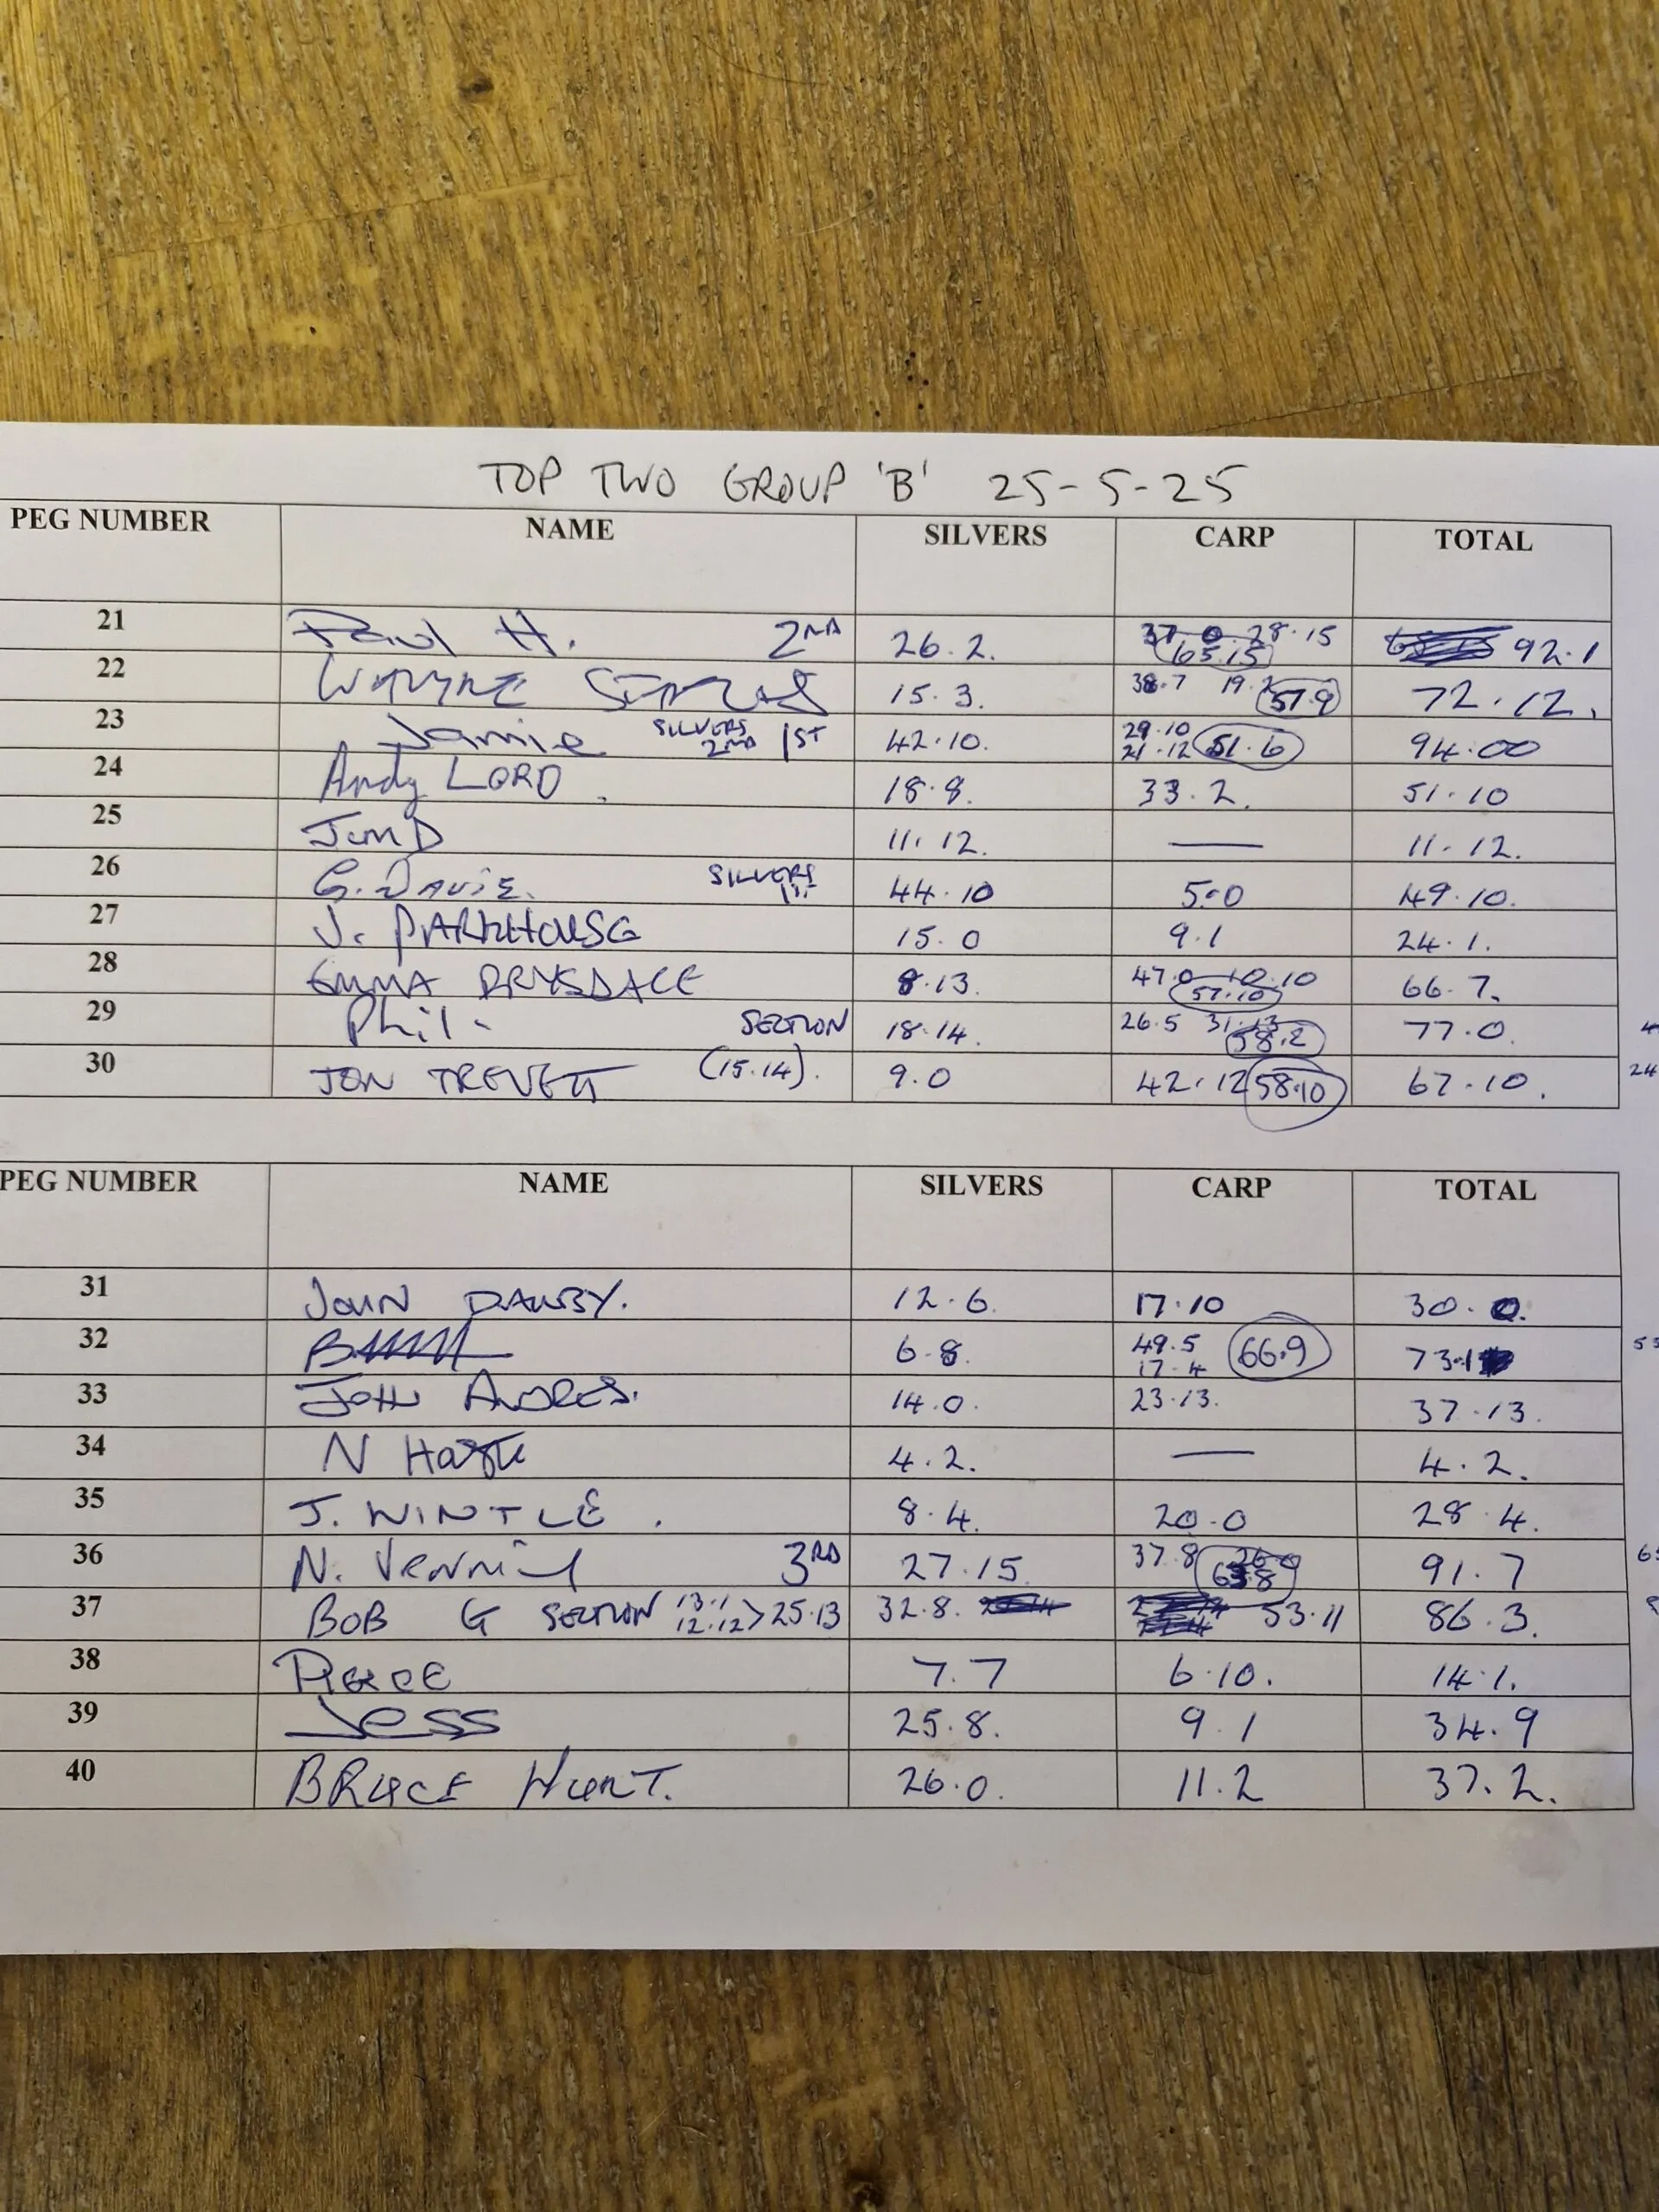 TOP TWO GROUP 'B' 25-5-25
PEG NUMBER NAME SILVERS CARP TOTAL
21 Paul H. 2ND 26.2. 37.0 28.15 65.15 92.1
22 WAYNE 15.3. 38.7 19.2 57.9 72.12.
23 Jamie SILVERS 2ND 1ST 42.10. 29.10 21.12 51.6 94.00
24 Andy LORD. 18.8. 33.2. 51.10
25 JimD 11.12. — 11.12.
26 G. DAVIE. SILVERS 1ST 44.10 5.0 49.10.
27 J. PARKHOUSE 15.0 9.1 24.1.
28 EMMA DRYSDALE 8.13. 47.0 10.10 57.10 66.7.
29 Phil. SECTION 18.14. 26.5 31.13 58.2 77.0
30 JON TREVETT (15.14). 9.0 42.12 58.10 67.10.
24
PEG NUMBER NAME SILVERS CARP TOTAL
31 JOHN DANBY. 12.6. 17.10 30.0.
32 6.8. 49.5 17.4 66.9 73.1
33 JOHN 14.0. 23.13. 37.13.
34 N 4.2. — 4.2.
35 J. WINTLE. 8.4. 20.0 28.4.
36 N. 3RD 27.15. 37.8 63.8 91.7
37 BOB G SECTION 13.1 12.12 > 25.13 32.8. 53.11 86.3.
38 PIERCE 7.7 6.10. 14.1.
39 Jess 25.8. 9.1 34.9
40 BRUCE HUNT. 26.0. 11.2 37.2.